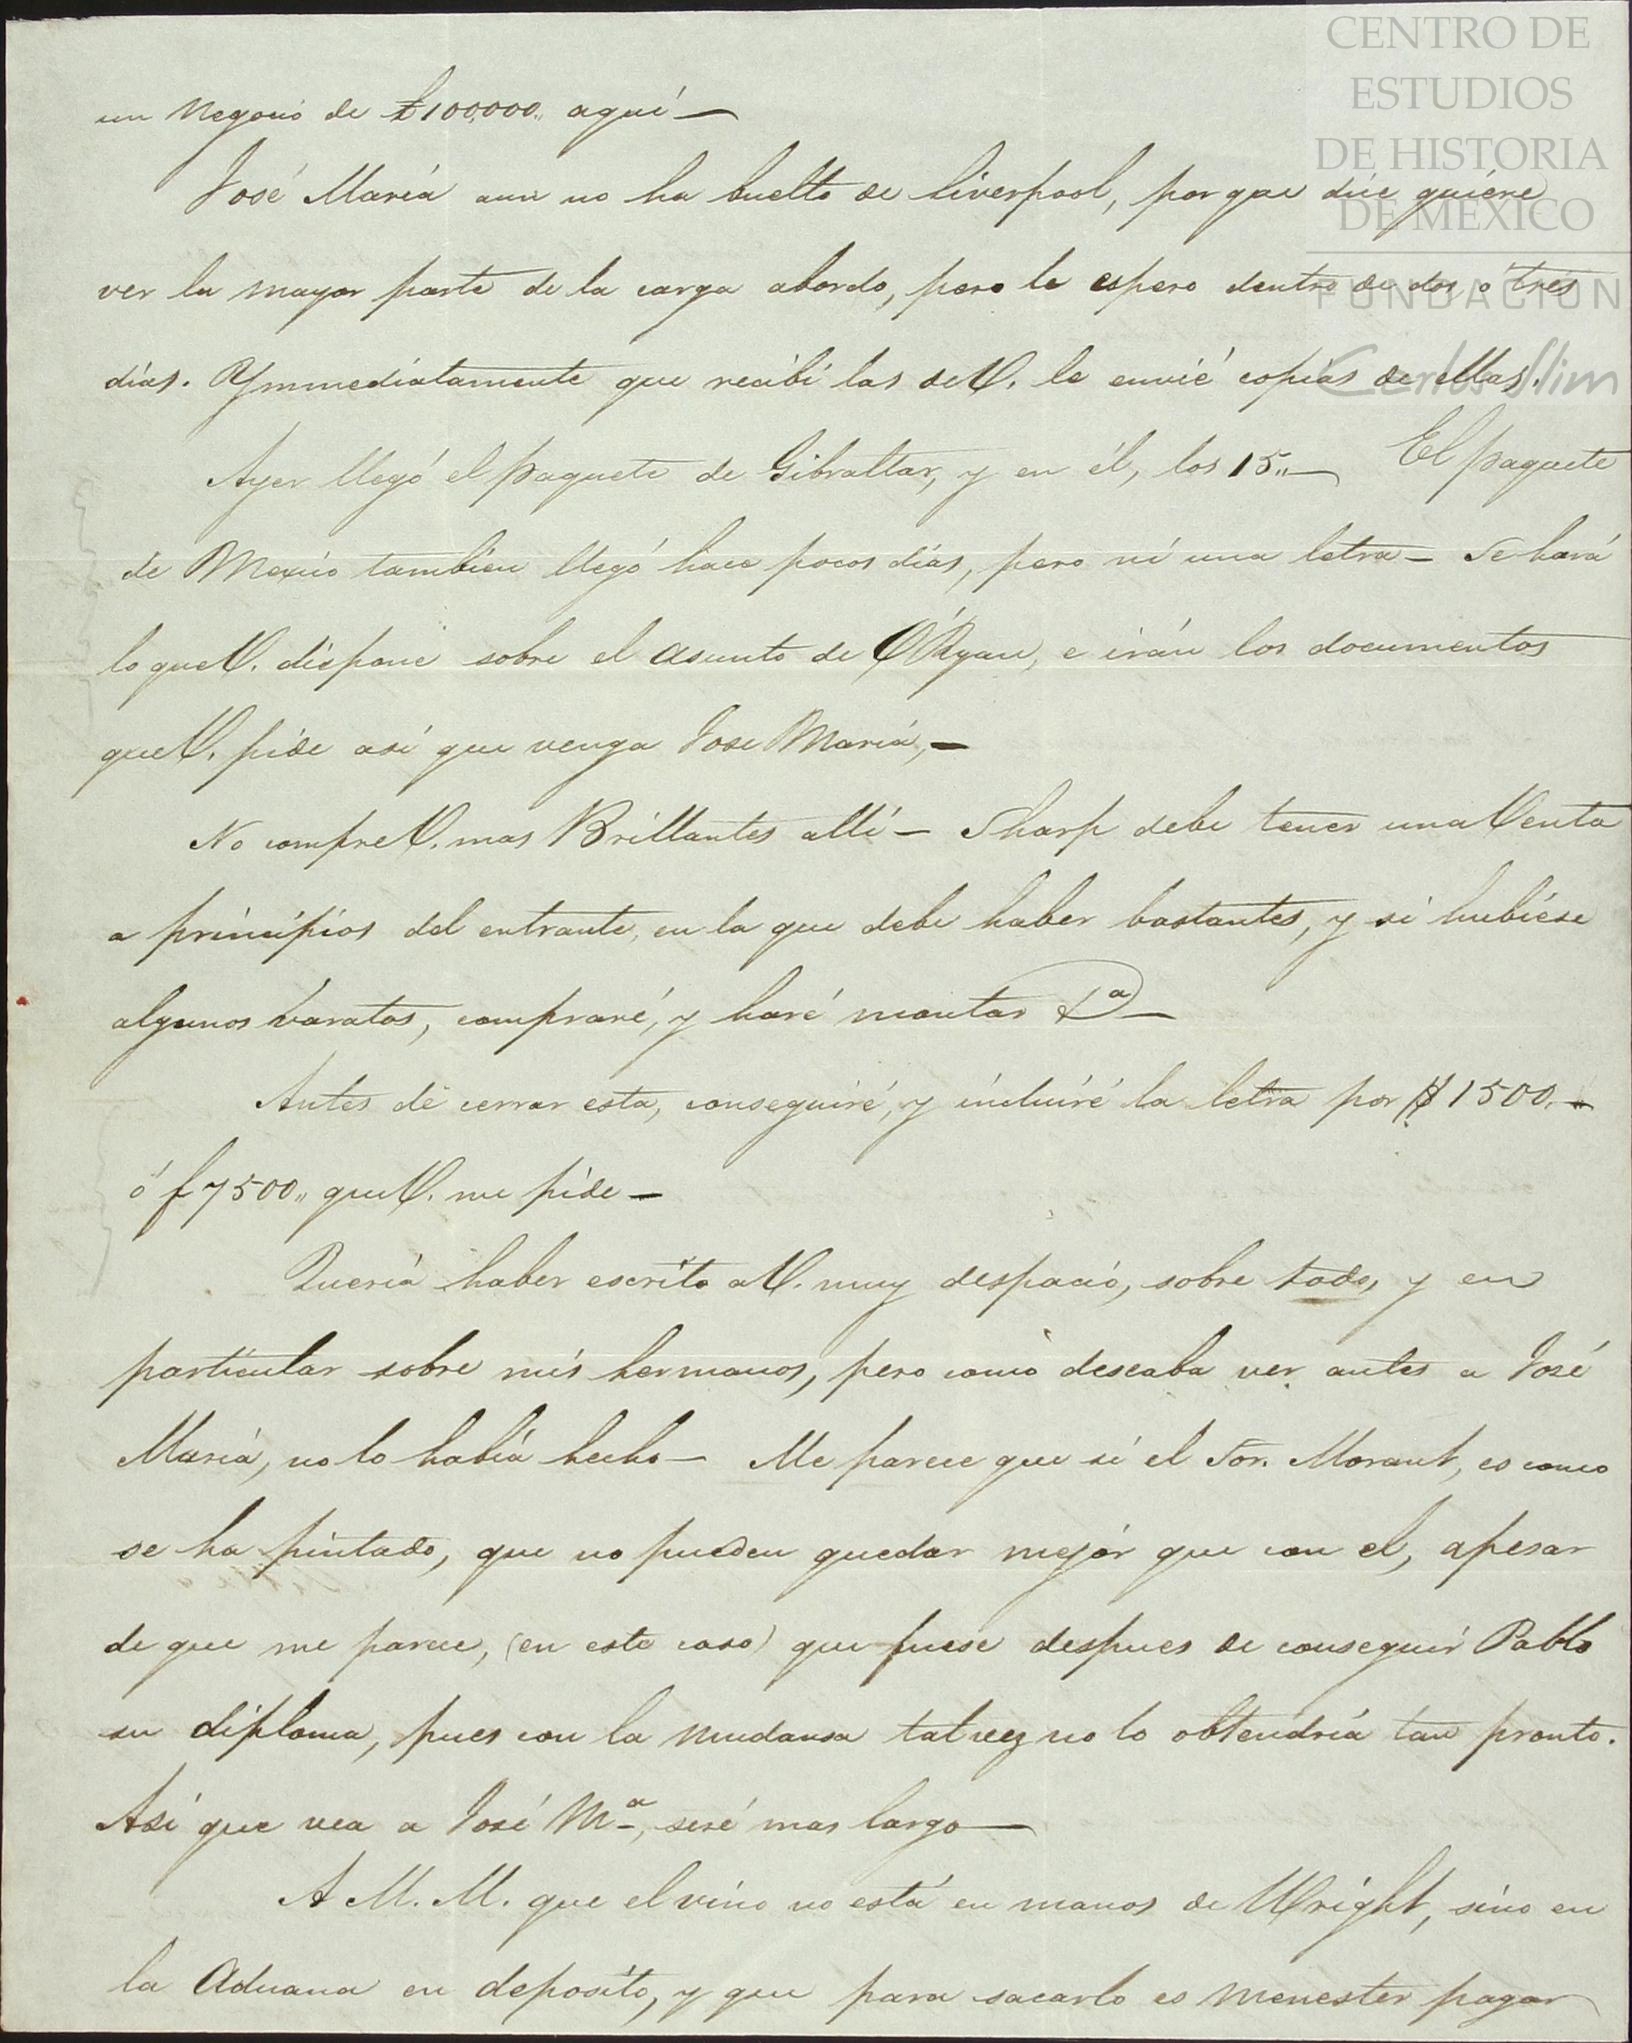 CENTRO DE
ESTUDIOS
DE HISTORIA
DE MÉXICO
FUNDACIÓN
Carlos Slim
un negocio de £100,000,, aquí —
José María aun no ha buelto de Liverpool, porque dice quiére
ver la mayor parte de la carga abordo, pero le espero dentro de dos o tres
días. Ymmediatamente que recibí las de V. le envié copias de ellas.
Ayer llegó el paquete de Gibraltar, y en él, los 15,, — El paquete
de Mexico tambien llegó hace pocos días, pero ni una letra — Se hará
lo que V. dispone sobre el asunto de O'Ryan, e irán los documentos
que V. pide así que venga Jose María, —
No compre V. mas Brillantes allí — Sharp debe tener una Venta
a principios del entrante, en la que debe haber bastantes, y si hubiése
algunos varatos, compraré, y haré montar
Antes de cerrar esta, conseguiré, y incluiré la letra por $1500,, —
ó f 7500,, que V. me pide —
Quería haber escrito a V. muy despacio, sobre todo, y en
particular sobre mis hermanos, pero como deseaba ver antes a José
María, no lo había hecho — Me parece que si el Sor. Morant, es como
se ha pintado, que no pueden quedar mejór que con el, apesar
de que me parece, (en este caso) que fuese despues de conseguir Pablo
su diploma, pues con la mudansa talvez no lo obtendría tan pronto.
Así que vea a José Mª, seré mas largo —
A M. M. que el vino no está en manos de Wright, sino en
la Aduana en deposíto, y que para sacarlo es menester pagar